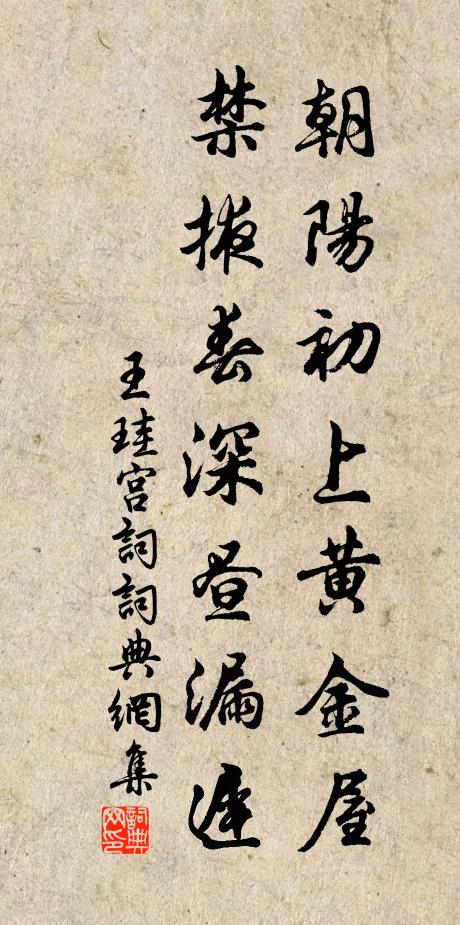 朝陽初上黄金屋
禁掖春深昼漏遲
王珪宫詞詞典網集
詞典网印